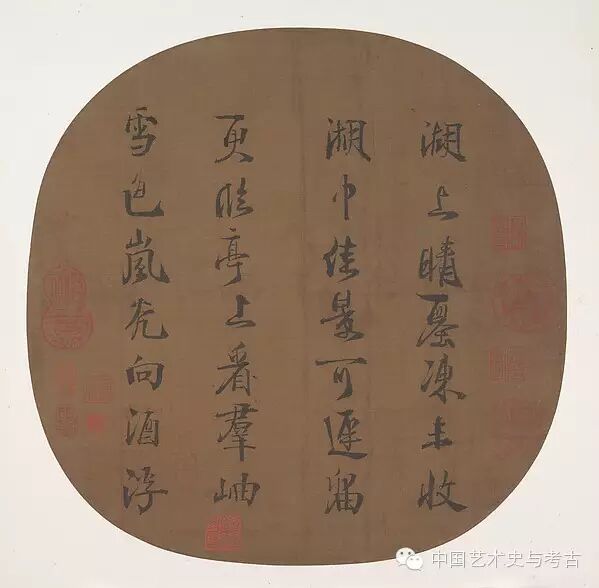 湖上晴凍未收
湖中佳景可遲留
更臨亭上看羣岫
雪色嵐光向酒浮
中国艺术史与考古